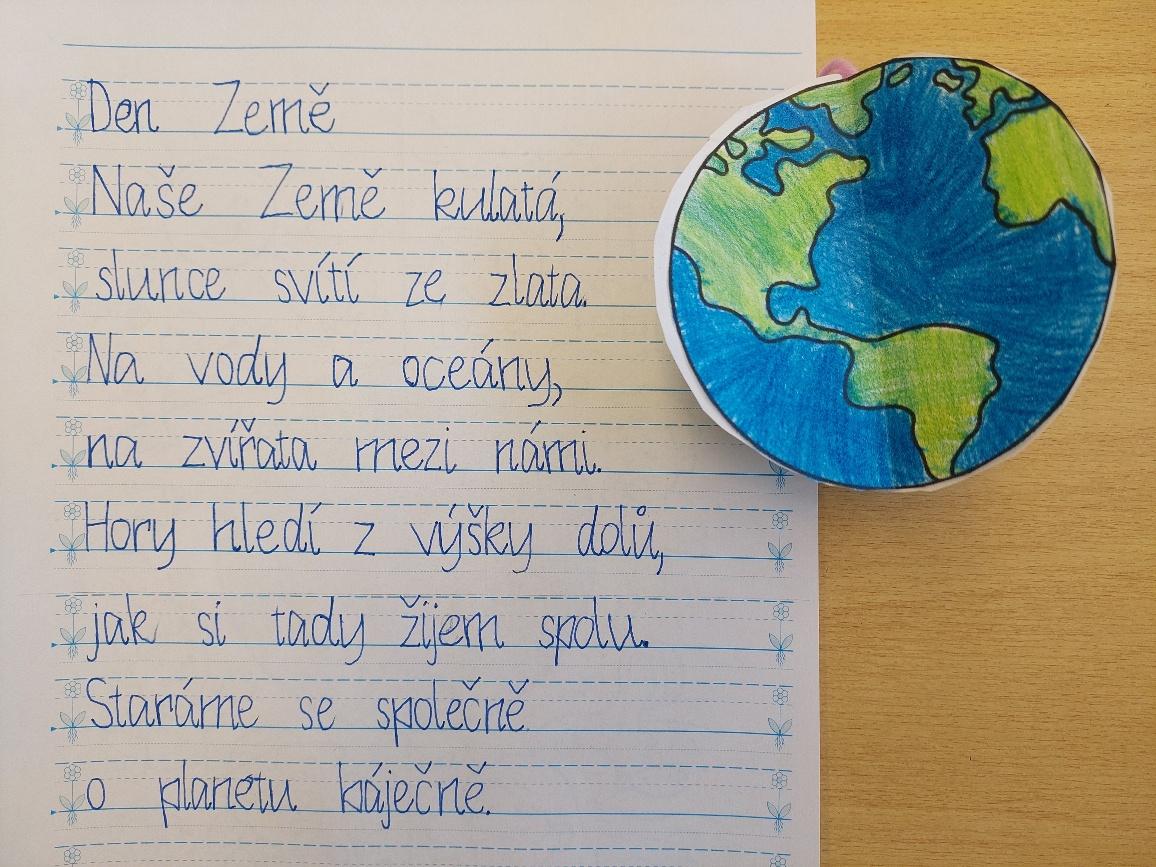 Den Země
Naše Země kulatá,
slunce svítí ze zlata.
Na vody a oceány,
na zvířata mezi námi.
Hory hledí z výšky dolů,
jak si tady žijem spolu.
Staráme se společně
o planetu báječně.